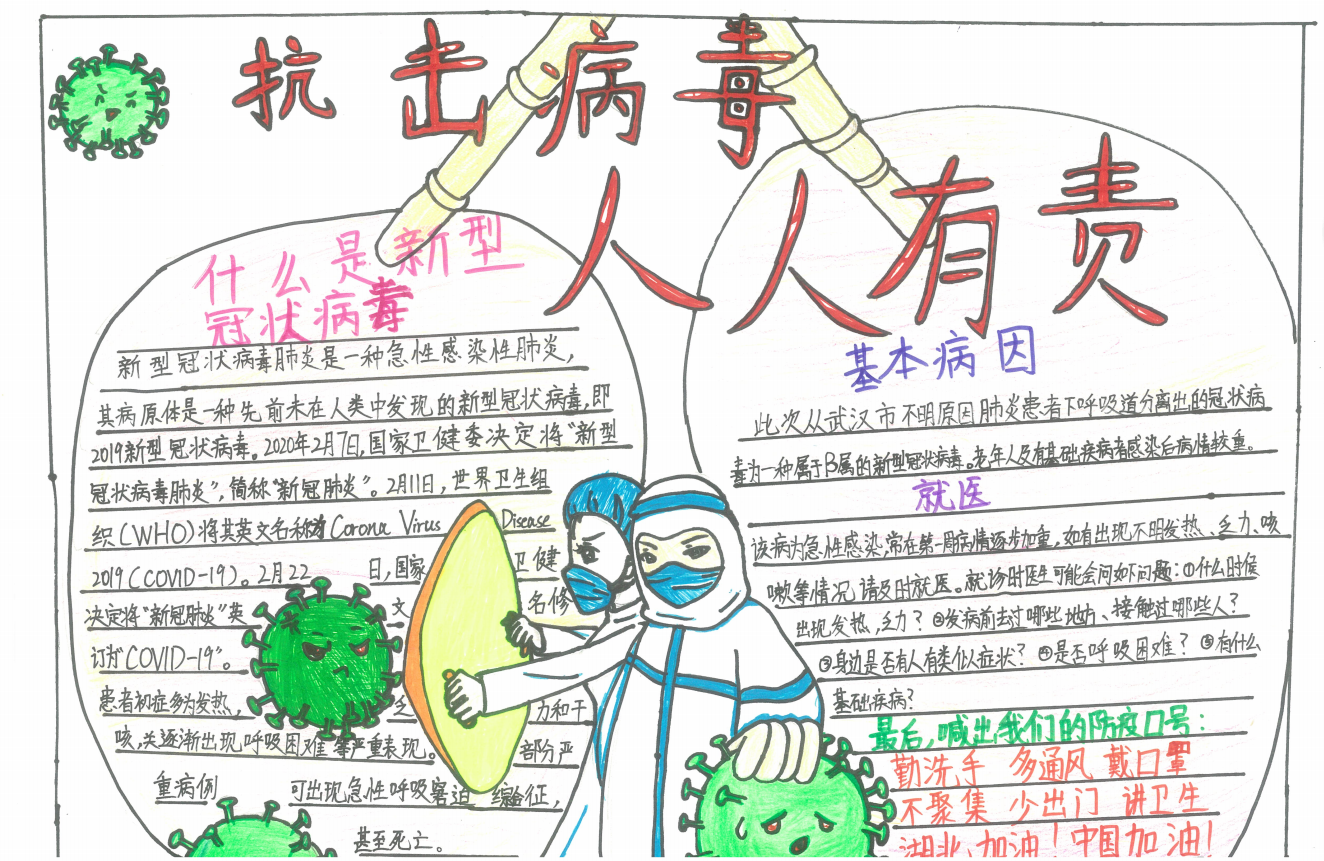 抗击病毒
人人有责
什么是新型
冠状病毒
新型冠状病毒肺炎是一种急性感染性肺炎,
其病原体是一种先前未在人类中发现的新型冠状病毒,即
2019新型冠状病毒。2020年2月7日,国家卫健委决定将“新型
冠状病毒肺炎”,简称“新冠肺炎”。2月11日,世界卫生组
织(WHO)将其英文名称为Corona Virus Disease
2019(COVID-19)。2月22日,国家卫健
决定将“新冠肺炎”英文名修
订为“COVID-19”。
患者初症多为发热,乏力和干
咳,并逐渐出现呼吸困难等严重表现。部分严
重病例可出现急性呼吸窘迫综合征,
甚至死亡。
基本病因
此次从武汉市不明原因肺炎患者下呼吸道分离出的冠状病
毒为一种属于β属的新型冠状病毒。老年人及有基础疾病者感染后病情较重。
就医
该病为急性感染,常在第一周病情逐步加重,如有出现不明发热、乏力、咳
嗽等情况,请及时就医。就诊时医生可能会问如下问题:①什么时候
出现发热,乏力?②发病前去过哪些地方、接触过哪些人?
③身边是否有人有类似症状?④是否呼吸困难?⑤有什么
基础疾病?
最后,喊出我们的防疫口号:
勤洗手 多通风 戴口罩
不聚集 少出门 讲卫生
湖北加油!中国加油!